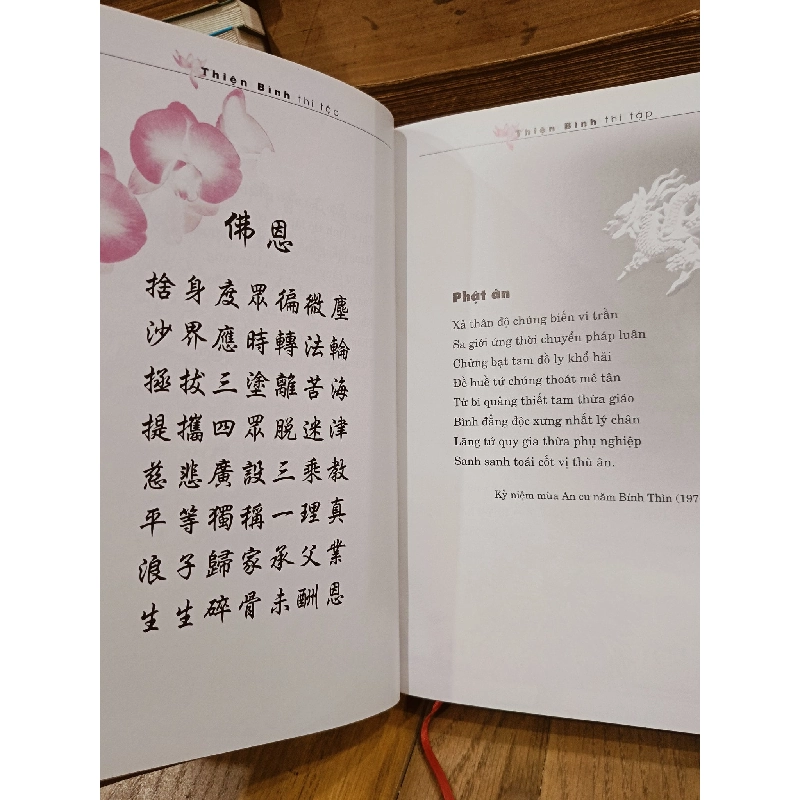 Thiện Bình thi tập
佛恩
捨身度眾徧微塵
沙界應時轉法輪
拯拔三塗離苦海
提攜四眾脫迷津
慈悲廣設三乘教
平等獨稱一理真
浪子歸家承父業
生生碎骨未酬恩
Thiện Bình thi tập
Phật ân
Xả thân độ chúng biến vi trần
Sa giới ứng thời chuyển pháp luân
Chửng bạt tam đồ ly khổ hải
Đề huề tứ chúng thoát mê tân
Từ bi quảng thiết tam thừa giáo
Bình đẳng độc xưng nhất lý chân
Lãng tử quy gia thừa phụ nghiệp
Sanh sanh toái cốt vị thù ân.
Kỷ niệm mùa An cư năm Bính Thìn (197